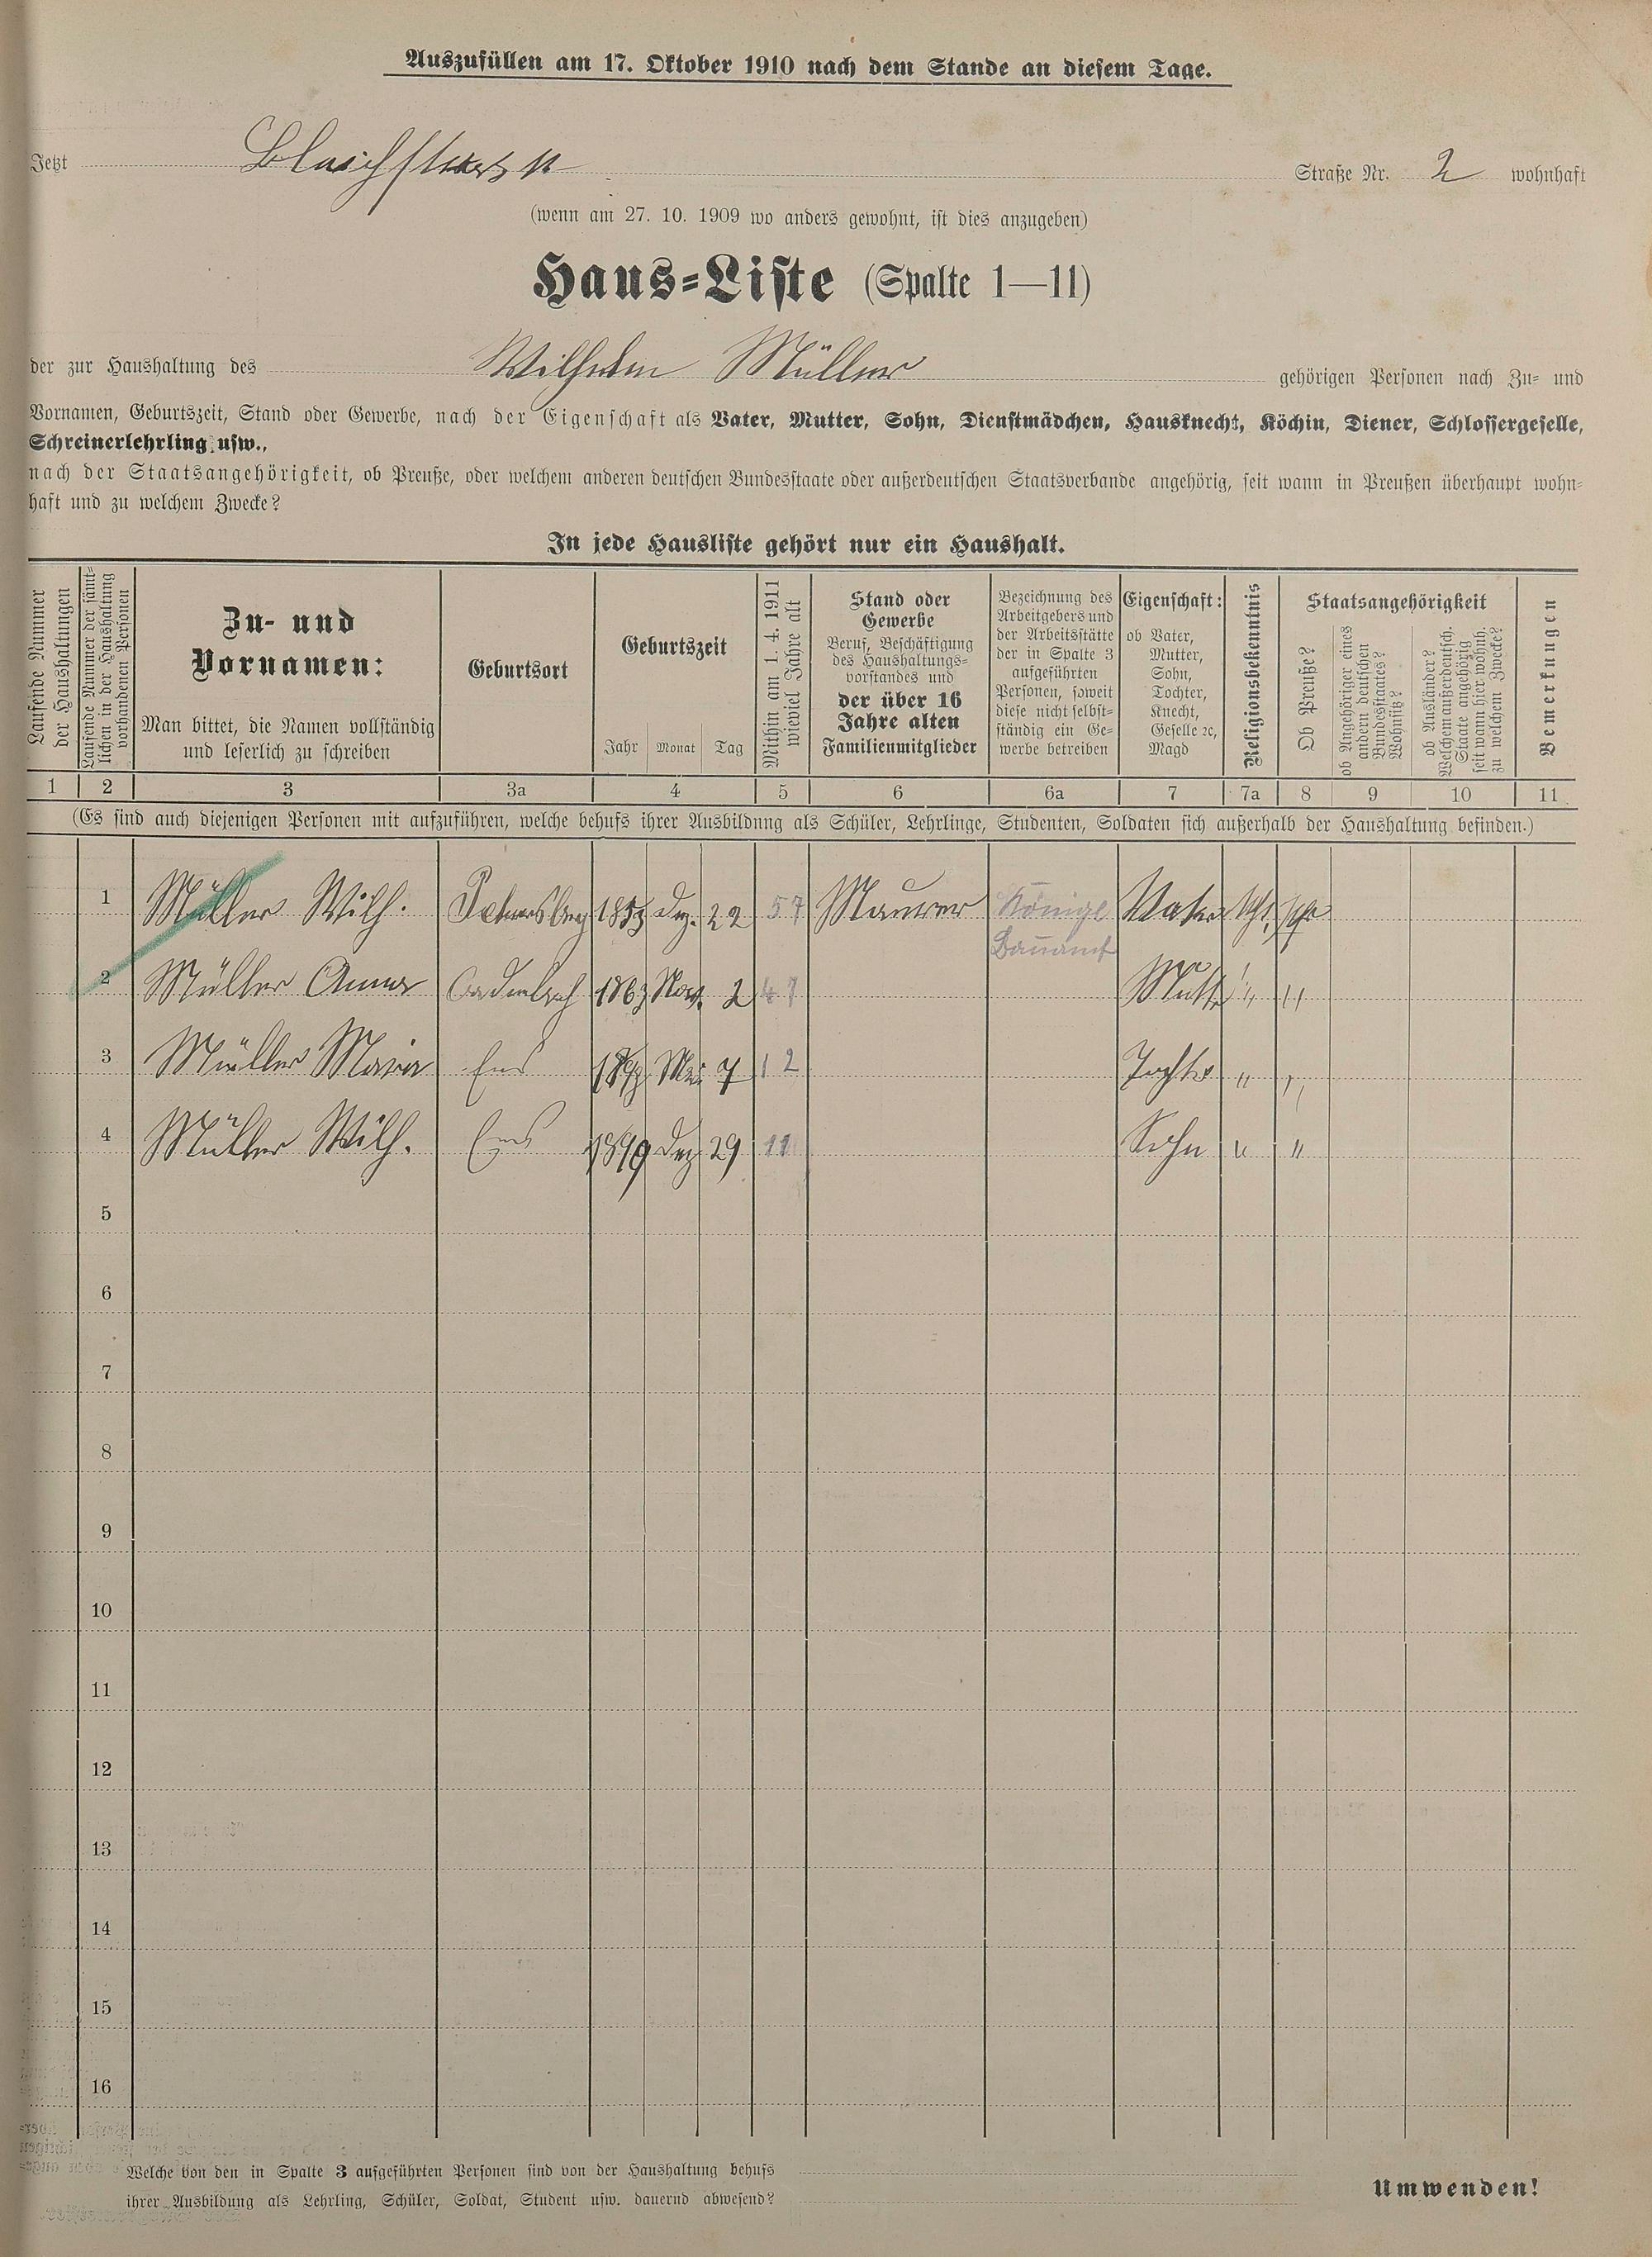 Auszufüllen am 17. Oktober 1910 nach dem Stande an diesem Tage.
Jetzt Straße Nr. 2 wohnhaft
(wenn am 27. 10. 1909 wo anders gewohnt, ist dies anzugeben)
Haus-Liste (Spalte 1—11)
der zur Haushaltung des Wilhelm Müller gehörigen Personen nach Zu- und
Vornamen, Geburtszeit, Stand oder Gewerbe, nach der Eigenschaft als Vater, Mutter, Sohn, Dienstmädchen, Hausknecht, Köchin, Diener, Schlossergeselle,
Schreinerlehrling usw.,
nach der Staatsangehörigkeit, ob Preuße, oder welchem anderen deutschen Bundesstaate oder außerdeutschen Staatsverbande angehörig, seit wann in Preußen überhaupt wohn-
haft und zu welchem Zwecke?
In jede Hausliste gehört nur ein Haushalt.
Laufende Nummer
der Haushaltungen
Laufende Nummer der sämt-
lichen in der Haushaltung
vorhandenen Personen
Zu- und
Vornamen:
Man bittet, die Namen vollständig
und leserlich zu schreiben
Geburtsort
Geburtszeit
Jahr Monat Tag
Mithin am 1. 4. 1911
wieviel Jahre alt
Stand oder
Gewerbe
Beruf, Beschäftigung
des Haushaltungs-
vorstandes und
der über 16
Jahre alten
Familienmitglieder
Bezeichnung des
Arbeitgebers und
der Arbeitsstätte
der in Spalte 3
aufgeführten
Personen, soweit
diese nicht selbst-
ständig ein Ge-
werbe betreiben
Eigenschaft:
ob Vater,
Mutter,
Sohn,
Tochter,
Knecht,
Geselle ec,
Magd
Religionsbekenntnis
Staatsangehörigkeit
Ob Preuße?
ob Angehöriger eines
andern deutschen
Bundesstaates?
Wohnsitz?
ob Ausländer?
Welchem außerdeutsch.
Staate angehörig
seit wann hier wohnh.
zu welchem Zwecke?
Bemerkungen
1 2 3 3a 4 5 6 6a 7 7a 8 9 10 11
(Es sind auch diejenigen Personen mit aufzuführen, welche behufs ihrer Ausbildung als Schüler, Lehrlinge, Studenten, Soldaten sich außerhalb der Haushaltung befinden.)
1 Müller Wilh. 1853 Dez. 22 57 Maurer Königl Vater
Bauamt
2 Müller Anna 1863 Nov. 2 47 Mutter " "
3 Müller Maria Ems Mai 7 12 Tochter " "
4 Müller Wilh. Ems 1899 Dez 29 11 Sohn " "
5
6
7
8
9
10
11
12
13
14
15
16
Welche von den in Spalte 3 aufgeführten Personen sind von der Haushaltung behufs
ihrer Ausbildung als Lehrling, Schüler, Soldat, Student usw. dauernd abwesend?
Umwenden!